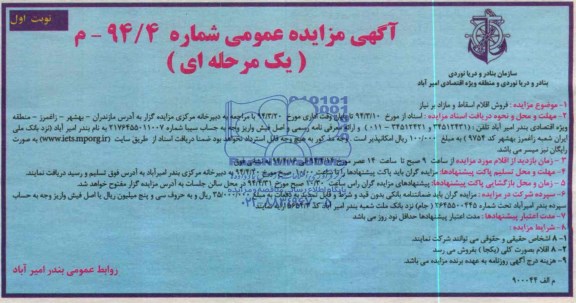 نوبت اول
آگهی مزایده عمومی شماره ۹۴/۴ - م
( یک مرحله ای )
سازمان بنادر و دریا نوردی
بنادر و دریا نوردی و منطقه ویژه اقتصادی امیر آباد
۱- موضوع مزایده : فروش اقلام اسقاط و مازاد بر نیاز
۲- مهلت و محل و نحوه دریافت اسناد مزایده : اسناد از مورخ ۹۴/۳/۱۰ تا پایان وقت اداری مورخ ۹۴/۳/۲۰ با مراجعه به دبیرخانه مرکزی مزایده گزار به آدرس مازندران - بهشهر - زاغمرز - منطقه
ویژه اقتصادی بندر امیر آباد تلفن : و ارائه معرفی نامه رسمی و اصل فیش واریز وجه به حساب سیبا شماره ۲۱۷۶۴۵۵۰۱۱۰۰۷ به نام بندر امیر آباد (نزد بانک ملی
ایران شعبه زاغمرز بهشهر کد ۹۷۵۴ ) به مبلغ ۱۰۰/۰۰۰ ریال امکانپذیر است . وجه مذکور به هیچ وجه قابل استرداد نخواهد بود ضمنا دریافت اسناد از طریق سایت (www.iets.mporg.ir) به صورت
رایگان نیز میسر می باشد.
۳- زمان بازدید از اقلام مورد مزایده از ساعت ۹ صبح تا ساعت ۱۴ عصر مورخ
۴- مهلت و محل تسلیم پاکت پیشنهادها: مزایده گران باید پاکت پیشنهادها را تا ساعت به دبیرخانه مرکزی بندر امیرآباد به آدرس فوق تسلیم و رسید دریافت نمایند.
۵- زمان و محل بازگشایی پاکت پیشنهادها: پیشنهادهای مزایده گران راس ساعت ۱۰/۳۰ صبح مورخ در محل سالن جلسات به آدرس مزایده گزار مفتوح خواهد شد.
۶- سپرده شرکت در مزایده : مزایده گران باید ضمانتنامه بانکی بدون قید و شرط و قابل تمدید به مبلغ ۳۵/۰۰۰/۰۰۰ ریال و به حروف سی و پنج میلیون ریال یا اصل فیش واریز وجه به حساب
سپرده شماره ۲۶۴۵۵۰۰۴۴۵ (جام) نزد بانک ملت شعبه بندر امیر آباد کد ارائه نمایند.
۷- مدت اعتبار پیشنهادها: مدت اعتبار پیشنهادها حداقل نود روز می باشد.
۸- شرایط مزایده :
۱-۸ اشخاص حقیقی و حقوقی می توانند شرکت نمایند.
۲-۸ اقلام بصورت کلی (یکجا ) بفروش می رسد
۹- هزینه درج آگهی روزنامه به عهده برنده مزایده می باشد.
م الف ۹۰۰۰۴۴
روابط عمومی بندر امیر آباد